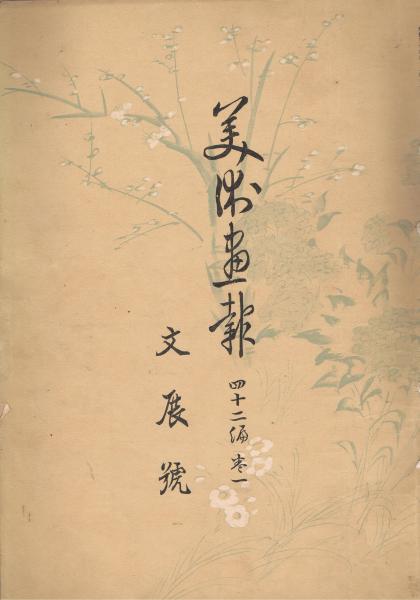 美術畫報 四十二編 卷一
文展號